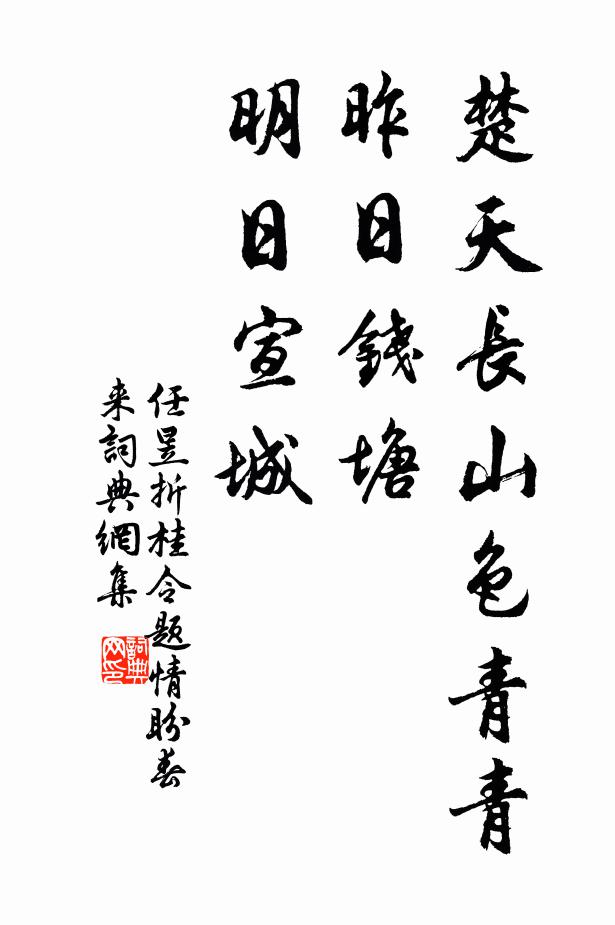 楚天長山色青青
昨日錢塘
明日宣城
任昱折桂令題情盼春
来詞典網集
詞典网印